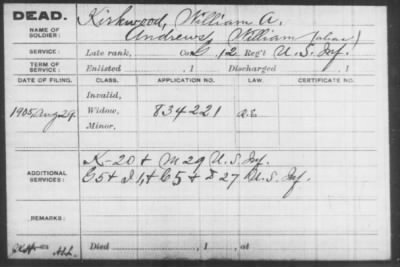 DEAD.
NAME OF SOLDIER: Kirkwood, William A.
Andrews, William (alias)
SERVICE: Late rank, Co. G, 12 Reg't U.S. Inf.
TERM OF SERVICE: Enlisted , 1 Discharged , 1
DATE OF FILING. CLASS. APPLICATION NO. LAW. CERTIFICATE NO.
Invalid,
1905 Aug 29. Widow, 834221
Minor,
ADDITIONAL SERVICES: K-20 & M 29 U.S. Inf.
G 5 & I, 1, & C 5 & 27 U.S. Inf.
REMARKS:
Died , 1 , at